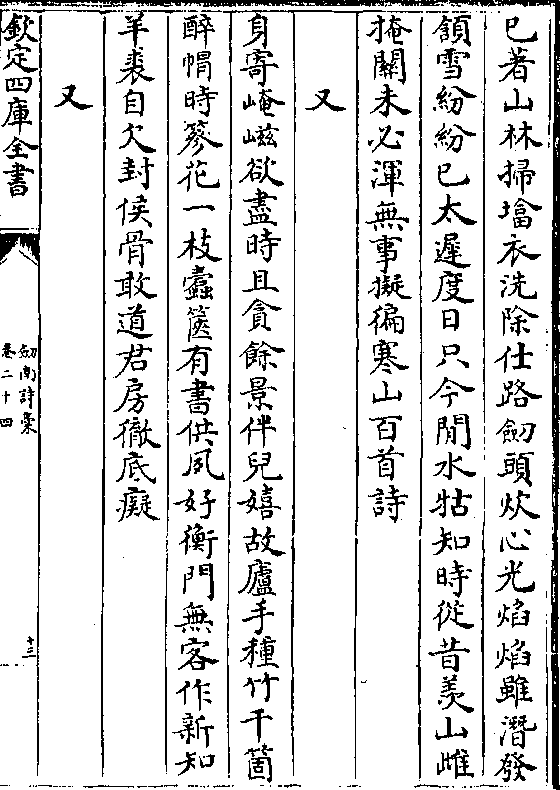 已著山林掃㙮衣洗除仕路劒頭炊心光焰焰雖潛發
頷雪紛紛已太遲度日只今閒水牯知時從昔羡山雌
掩關未必渾無事擬徧寒山百首詩
又
身寄崦嵫欲盡時且貪餘景伴兒嬉故廬手種竹千箇
醉㡌時簪花一枝蠧篋有書供夙好衡門無客作新知
羊裘自欠封侯骨敢道君房徹底癡
又
欽定四庫全書
劒南詩稾
卷二十四
十三